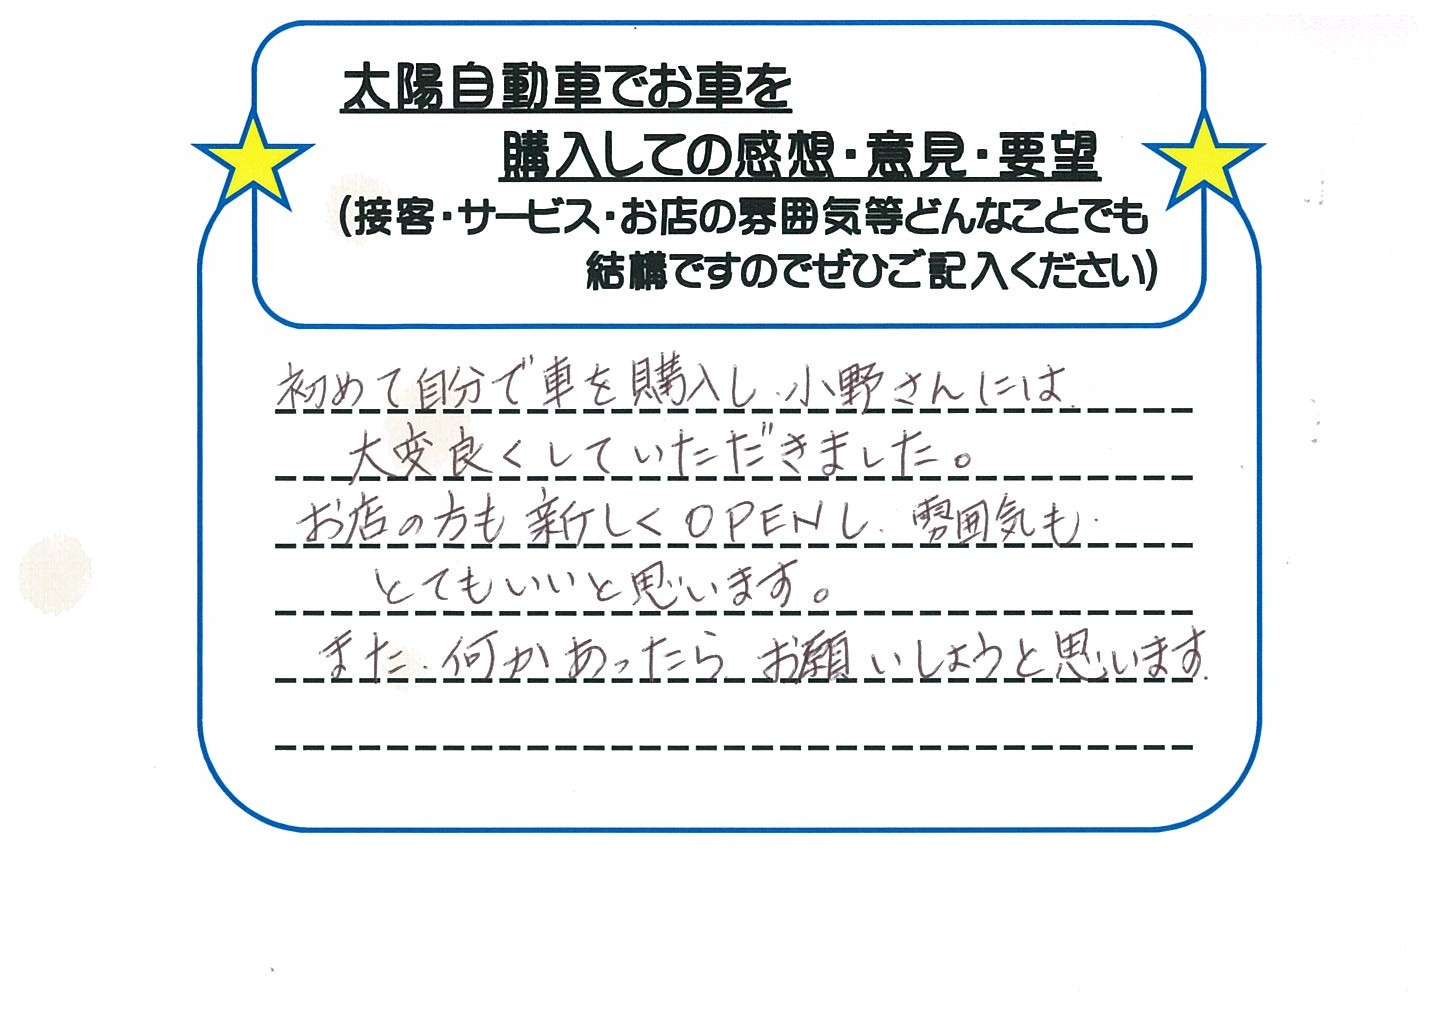 太陽自動車でお車を
購入しての感想・意見・要望
(接客・サービス・お店の雰囲気等どんなことでも
結構ですのでぜひご記入ください)
初めて自分で車を購入し、小野さんには、
大変良くしていただきました。
お店の方も新しくOPENし、雰囲気も
とてもいいと思います。
また、何かあったら、お願いしようと思います。